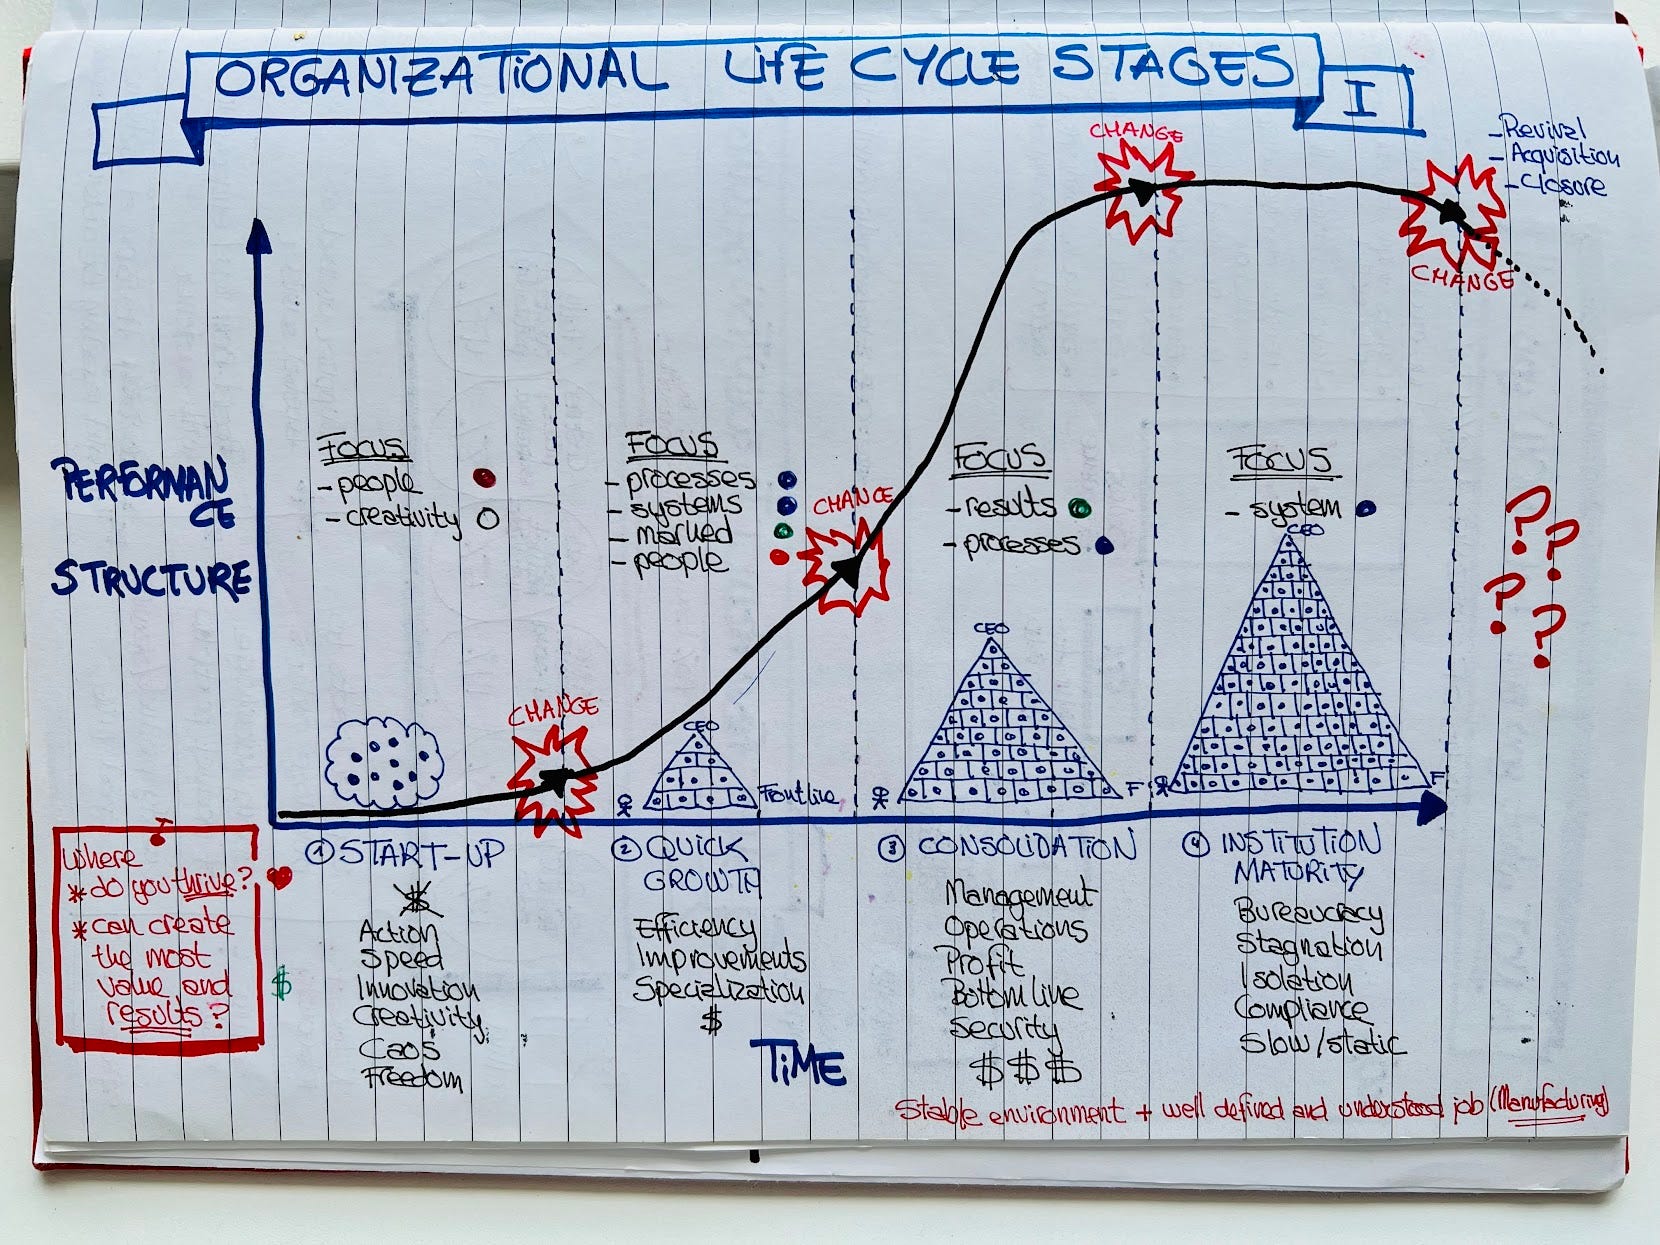 ORGANIZATIONAL LIFE CYCLE STAGES
I
- Revival
- Acquisition
- Closure
CHANGE
CHANGE
CHANGE
CHANGE
PERFORMAN
CE
STRUCTURE
FOCUS
- people
- creativity
FOCUS
- processes
- systems
- marked
- people
FOCUS
- results
- processes
FOCUS
- system
? ? ? ?
CEO
Frontline
CEO
F
CEO
F
1 START-UP
$
Action
Speed
Innovation
Creativity
Caos
Freedom
2 QUICK
GROWTH
Efficiency
Improvements
Specialization
$
3 CONSOLIDATION
Management
Operations
Profit
Bottom line
Security
$ $ $
4 INSTITUTION
MATURITY
Bureaucracy
Stagnation
Isolation
Compliance
Slow/static
I
Where
* do you thrive?
* can create
the most
value and
results?
$
TiME
Stable environment + well defined and understood job (Manufacturing)